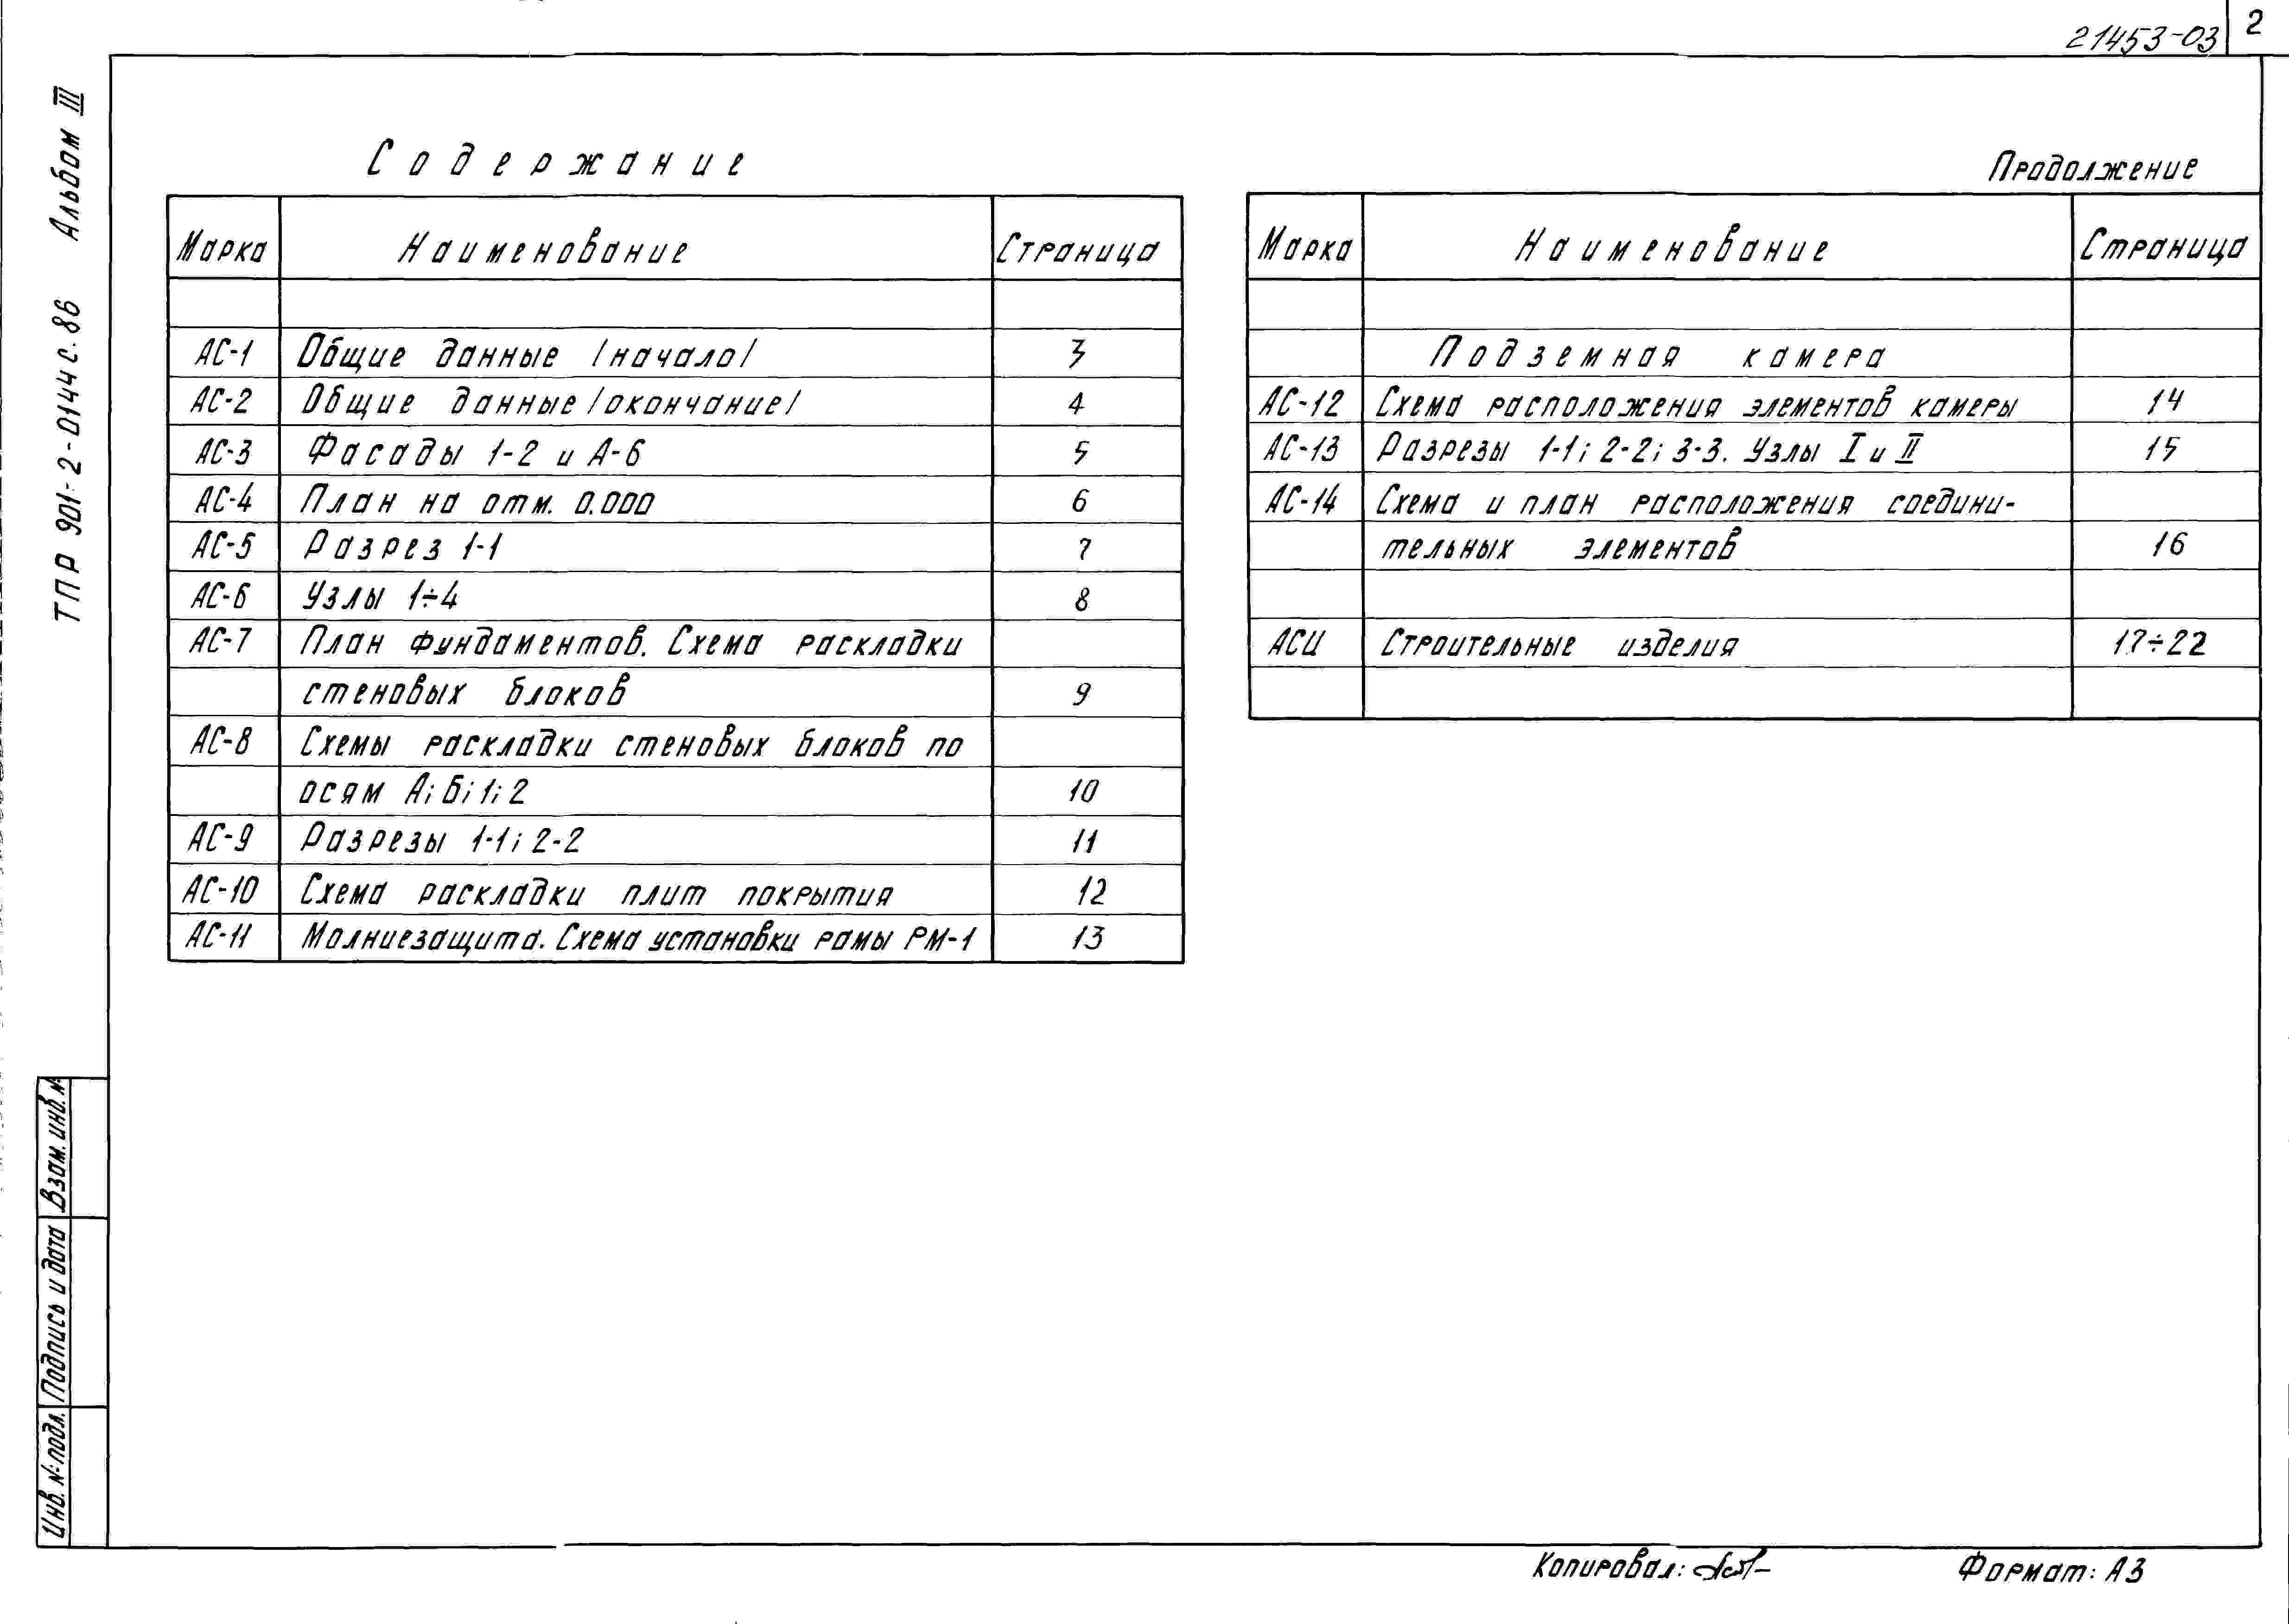 21453-03 2
ТПР 901-2-0144 с.86 Альбом III
Содержание
Марка Наименование Страница
АС-1 Общие данные /начало/ 3
АС-2 Общие данные /окончание/ 4
АС-3 Фасады 1-2 и А-Б 5
АС-4 План на отм. 0.000 6
АС-5 Разрез 1-1 7
АС-6 Узлы 1÷4 8
АС-7 План фундаментов. Схема раскладки
стеновых блоков 9
АС-8 Схемы раскладки стеновых блоков по
осям А; Б; 1; 2 10
АС-9 Разрезы 1-1; 2-2 11
АС-10 Схема раскладки плит покрытия 12
АС-11 Молниезащита. Схема установки рамы РМ-1 13
Продолжение
Марка Наименование Страница
Подземная камера
АС-12 Схема расположения элементов камеры 14
АС-13 Разрезы 1-1; 2-2; 3-3. Узлы I и II 15
АС-14 Схема и план расположения соедини-
тельных элементов 16
АСИ Строительные изделия 17÷22
Взам. инв. №
Подпись и дата
Инв. № подл.
Копировал:
Формат: А3